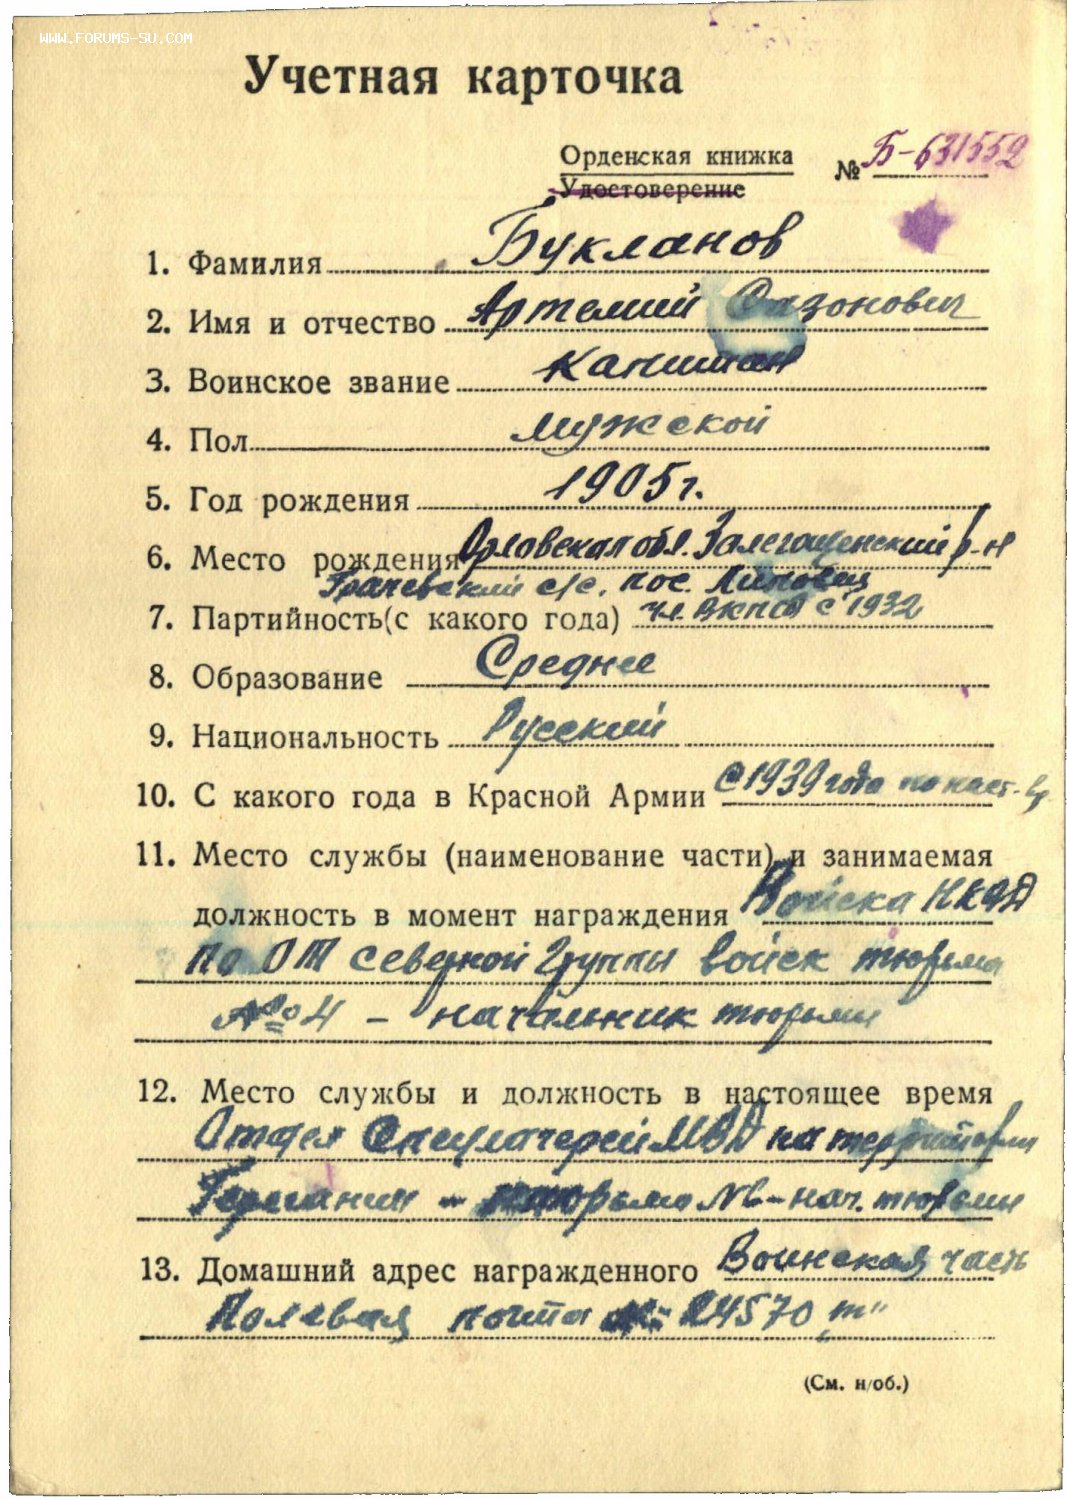 WWW.FORUMS-SU.COM
Учетная карточка
Орденская книжка
Удостоверение
№ Б-631552
1. Фамилия Букланов
2. Имя и отчество Артемий Сазонович
3. Воинское звание капитан
4. Пол мужской
5. Год рождения 1905 г.
6. Место рождения Орловская обл. Залегощенский р-н
Грачевский с/с, пос. Липовец
7. Партийность (с какого года) чл. ВКП(б) с 1932
8. Образование Среднее
9. Национальность Русский
10. С какого года в Красной Армии с 1939 года по наст. в.
11. Место службы (наименование части) и занимаемая
должность в момент награждения Войска НКВД
по ОТ северной Группы войск тюрьма
№ 4 – начальник тюрьмы
12. Место службы и должность в настоящее время
Отдел Спецлагерей МВД на территории
Германии – тюрьма № – нач. тюрьмы
13. Домашний адрес награжденного Воинская часть
Полевая почта № 24570 „т"
(См. н/об.)